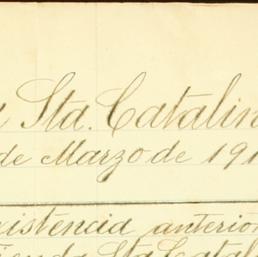 Sta. Catalin
de Marzo de 191
xistencia anterior
ienda Sta Catal